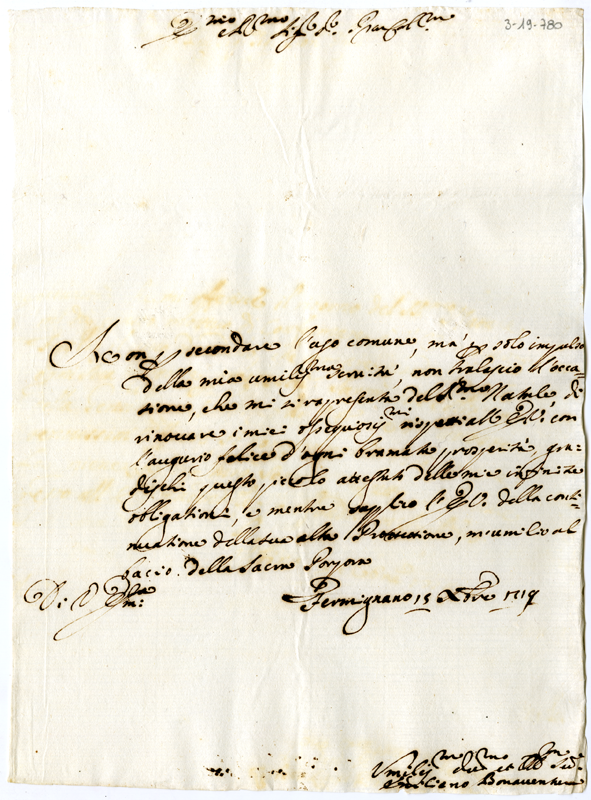 3-19-780
Non p secondare l'uso comune, mà p solo impulso
della mia umiliss.ma servitù, non tralascio l'occa=
sione, che mi si rapresenta del S.mo Natale, di
rinovare i miei ossequiosiss.mi rispetti all' E.V. con
l'augurio felice d'ogni bramata prosperità, gra=
dischi questo piccolo attestato delle mie infinite
obligationi, e mentre supplico l'E.V. della conti=
nuatione della sua alta Protettione, m'umilio al
bacio della Sacra Porpora
Di V. Em.za
Fermignano 15 Xbre 1719
Umiliss.mo et
Bonaventura